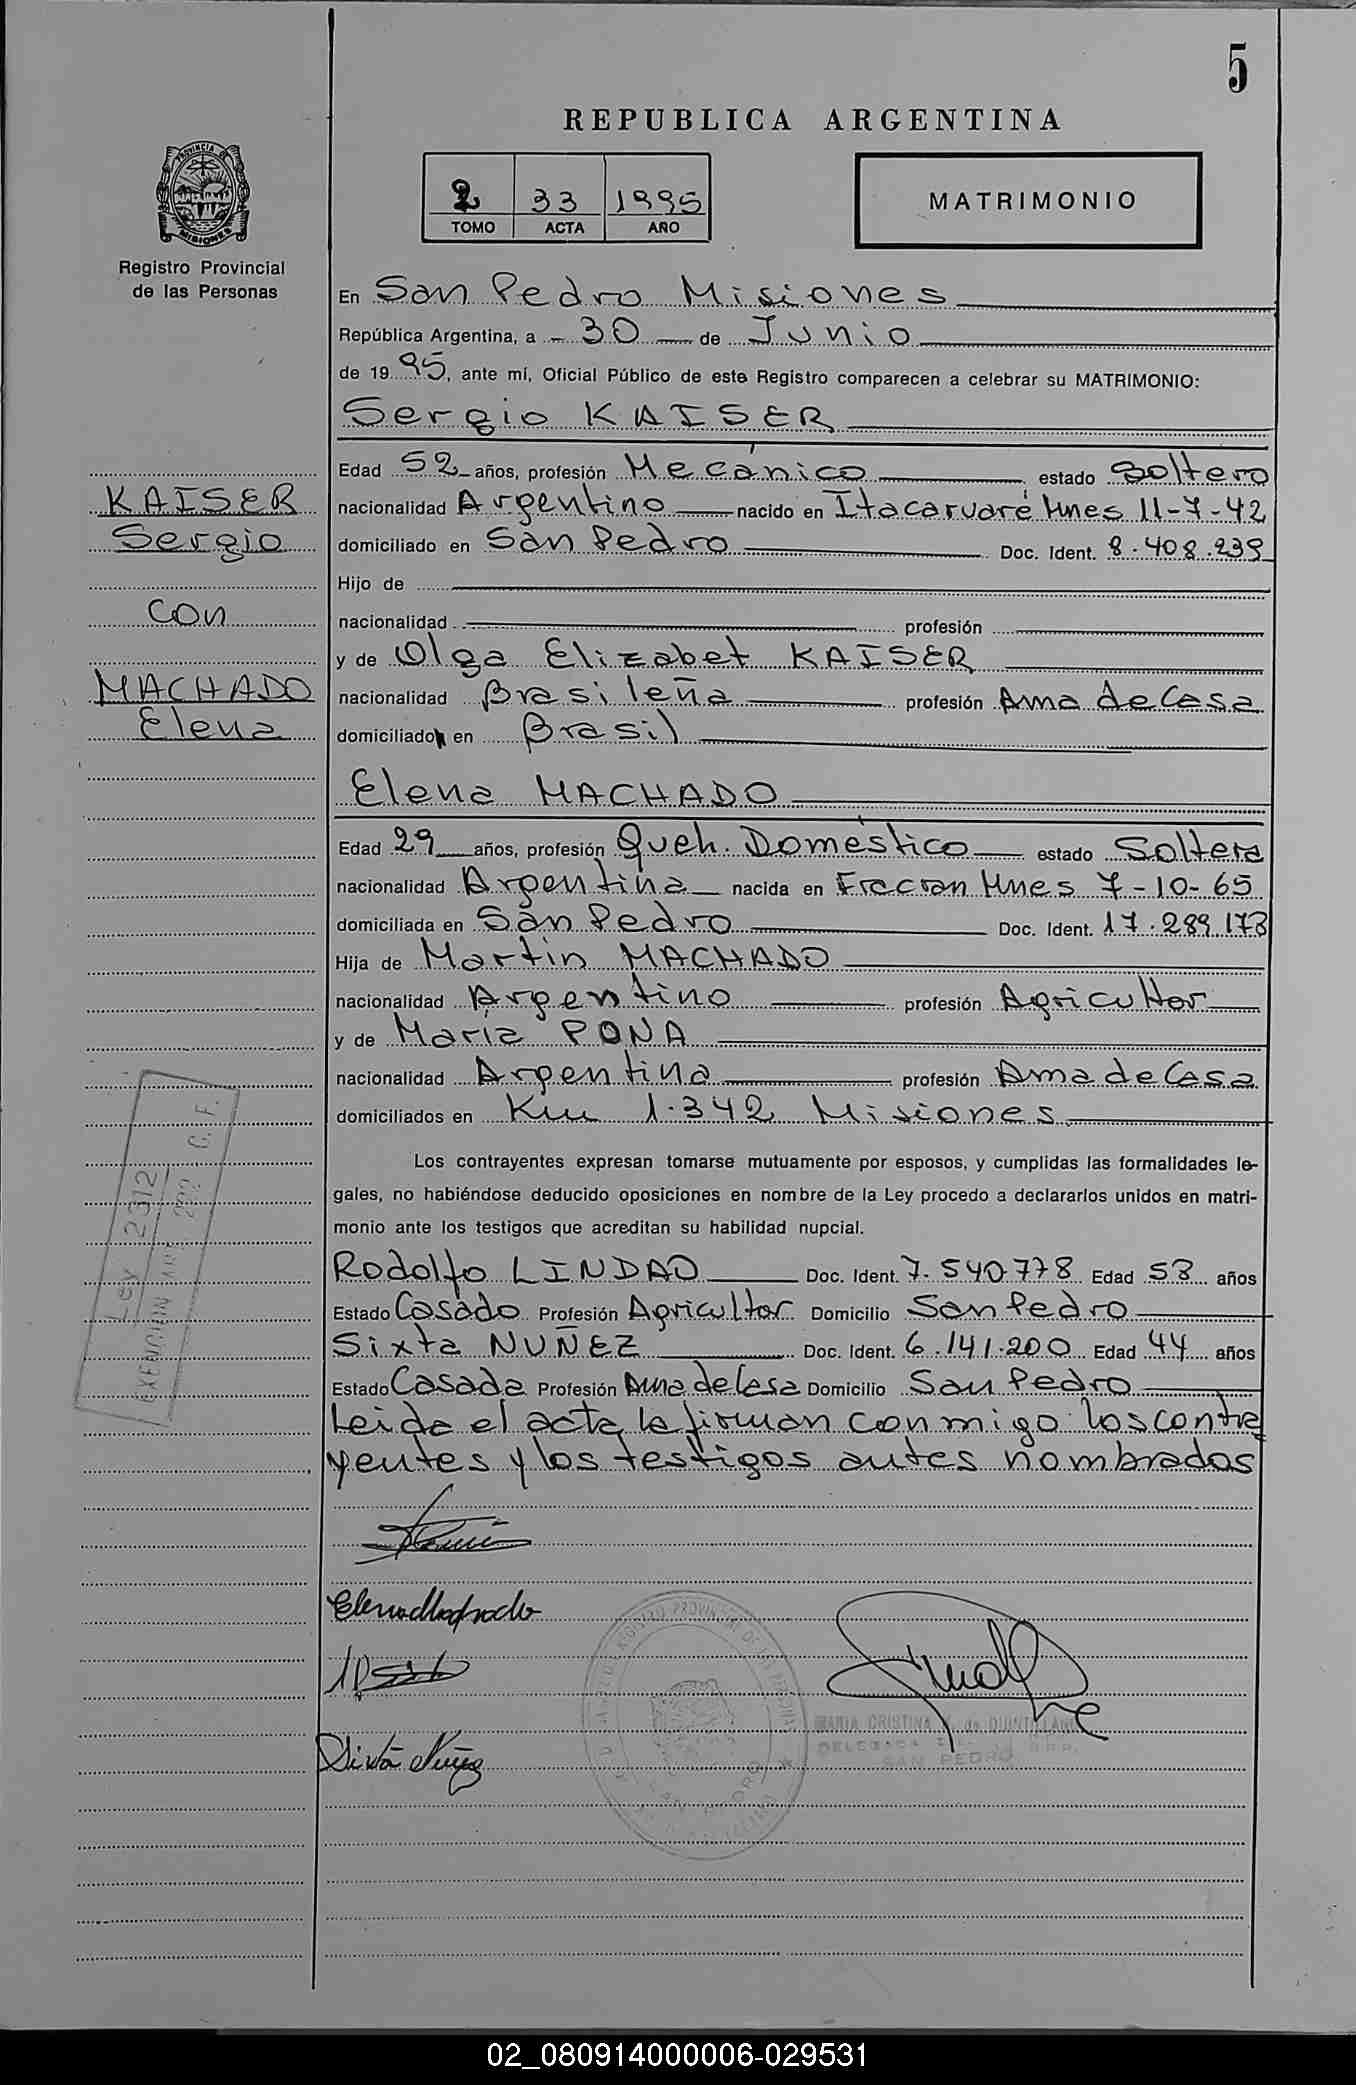 5
REPUBLICA ARGENTINA
2 33 1995
TOMO ACTA AÑO
MATRIMONIO
PROVINCIA DE MISIONES
Registro Provincial
de las Personas
En San Pedro Misiones
República Argentina, a 30 de Junio
de 19 95, ante mí, Oficial Público de este Registro comparecen a celebrar su MATRIMONIO:
Sergio KAISER
Edad 52 años, profesión Mecánico estado Soltero
KAISER
nacionalidad Argentino nacido en Itacaruaré Mnes 11-7-42
Sergio
domiciliado en San Pedro Doc. Ident. 8.408.239
Hijo de
con
nacionalidad profesión
y de Olga Elizabet KAISER
MACHADO
nacionalidad Brasileña profesión Ama de Casa
Elena
domiciliado en Brasil
Elena MACHADO
Edad 29 años, profesión Queh. Doméstico estado Soltera
nacionalidad Argentina nacida en Fracran Mnes 7-10-65
domiciliada en San Pedro Doc. Ident. 17.289.173
Hija de Martin MACHADO
nacionalidad Argentino profesión Agricultor
y de María PONA
nacionalidad Argentina profesión Ama de Casa
domiciliados en Km 1.342 Misiones
Los contrayentes expresan tomarse mutuamente por esposos, y cumplidas las formalidades le-
gales, no habiéndose deducido oposiciones en nombre de la Ley procedo a declararlos unidos en matri-
monio ante los testigos que acreditan su habilidad nupcial.
Ley 2312
EXENCION ART. 222 C. F.
Rodolfo LINDAO Doc. Ident. 7.540.778 Edad 58 años
Estado Casado Profesión Agricultor Domicilio San Pedro
Sixta NUÑEZ Doc. Ident. 6.141.200 Edad 44 años
Estado Casada Profesión Ama de Casa Domicilio San Pedro
Leida el acta la firman conmigo los contra
yentes y los testigos antes nombrados
Elena Machado
Sixta Nuñez
REGISTRO PROVINCIAL DE LAS PERSONAS
SAN PEDRO
MARIA CRISTINA de QUINTILLAN
DELEGADA
SAN PEDRO
02_080914000006-029531